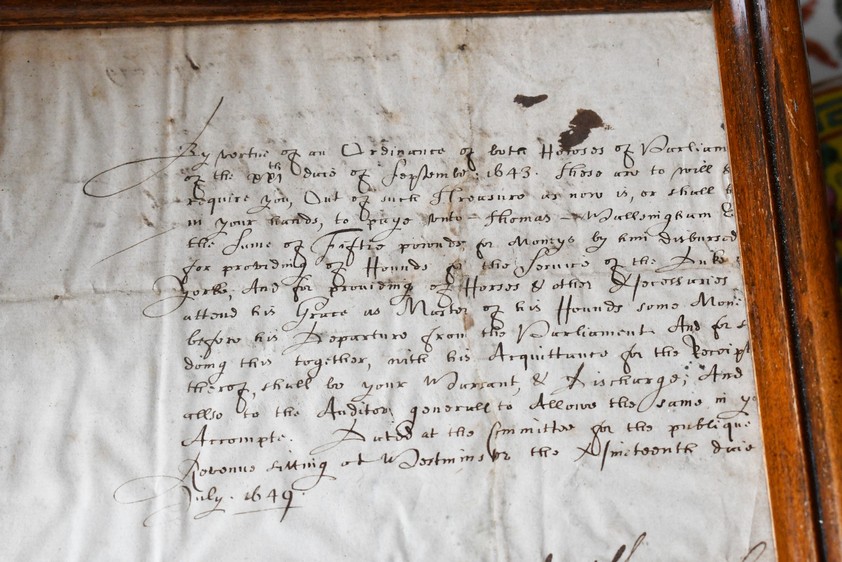 By vertue of an Ordinance of both Howses of Parliam
of the xxjth daie of September. 1643. These are to will &
require you, Out of such Treasure as now is, or shall b
in your hands, to paye unto Thomas Wallsingham
the Some of Fiftie pownds for Moneys by him disbursed
for providing of Hounds for the Service of the Duke
Yorke, And for providing of Horses & other Necessaries
attend his Grace as Master of his Hounds some Mon
before his Departure from the Parliament. And for s
doing this together, with his Acquittance for the Receipt
therof, shall be your Warrant, & Discharge; And
allso to the Auditor generall to Allowe the same in yo
Accompte. Dated at the Committee for the publique
Revenue sitting at Westminster the Nineteenth daie
July. 1649.